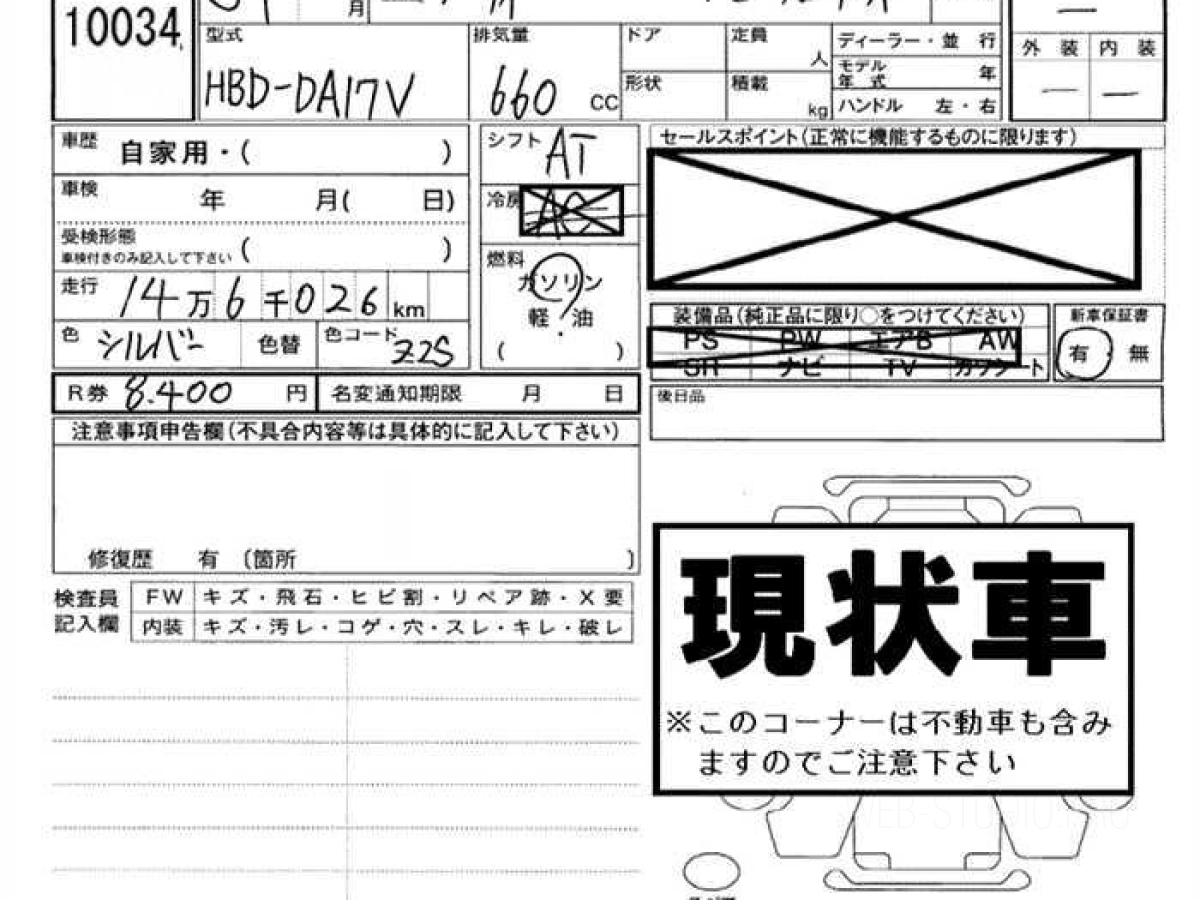 10034
月
型式
HBD-DA17V
排気量
660 CC
ドア
形状
定員
人
積載
kg
ディーラー・並 行
モデル年式 年
ハンドル 左・右
外 装 内 装
車歴 自家用・( )
車検 年 月( 日)
受検形態
車検付きのみ記入して下さい ( )
走行 14万6千026km
色 シルバー 色替 色コード Z2S
シフト AT
冷房 AC
燃料
ガソリン
軽・油
( )
セールスポイント(正常に機能するものに限ります)
装備品(純正品に限り○をつけてください)
PS PW エアB AW
SR ナビ TV カワシート
新車保証書
有・無
R券 8.400 円 名変通知期限 月 日
後日品
注意事項申告欄(不具合内容等は具体的に記入して下さい)
修復歴 有 〔箇所 〕
検査員記入欄
FW キズ・飛石・ヒビ割・リペア跡・X要
内装 キズ・汚レ・コゲ・穴・スレ・キレ・破レ
現状車
※このコーナーは不動車も含み
ますのでご注意下さい